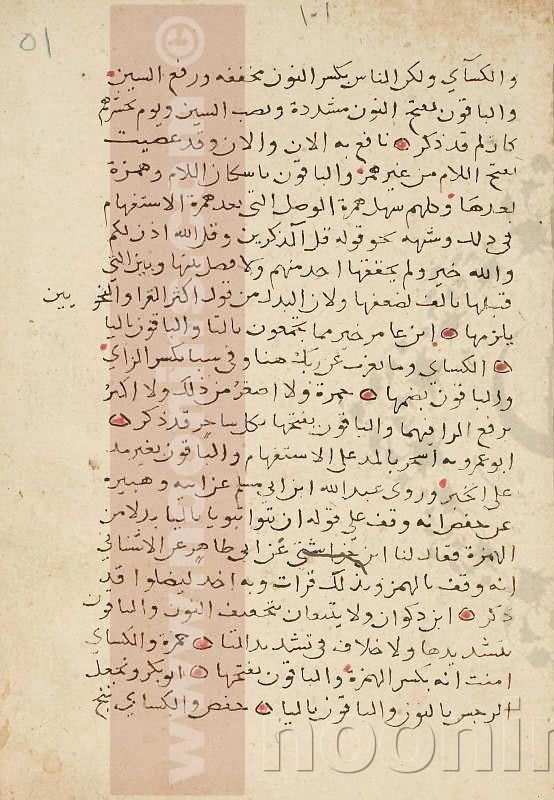 ٥١
١٠١
والكسآي ولكن الناس بكسر النون مخففه ورفع السين
والباقون بفتح النون مشددة ونصب السين ويوم يحشرهم
كان لم قد ذكر نافع به الان والان وقد عصيت
بفتح اللام من غير همز والباقون باسكان اللام وهمزة
بعدها وكلهم سهل همزة الوصل التي بعد همزة الاستفهام
في ذلك وشبهه نحو قوله قل آلذكرين وقل الله اذن لكم
والله خير ولم يحققها احد منهم ولا فصل بينها وبين التي
قبلها بالف لضعفها ولان البدل من قول اكثر القرا والنحويين
يلزمها ابن عامر خير مما يجمعون بالتا والباقون باليا
الكساي وما يعزب عن ربك هنا وفي سبا بكسر الزاي
والباقون بضمها حمزة ولا اصغر من ذلك ولا اكبر
برفع الرا فيهما والباقون بفتحها بكل ساحر قد ذكر
ابو عمرو به آلسحر بالمد على الاستفهام والباقون بغير مد
على الخبر وروى عبد الله ابن ابي مسلم عن ابيه وهبيره
عن حفص انه وقف على قوله ان تبوا تبويا باليا بدلا من
الهمزة فقال لنا ابن خواستي عن ابي طاهر عن الاشناني
انه وقف بالهمز وبذلك قرات وبه اخذ ليضلوا قد
ذكر ابن ذكوان ولا يتبعان بتخفيف النون والباقون
بتشديدها ولا خلاف في تشديد التا حمزة والكساي
امنت انه بكسر الهمزة والباقون بفتحها ابو بكر ونجعل
الرجس بالنون والباقون باليا حفص والكساي ننج
www.noonin
noonin